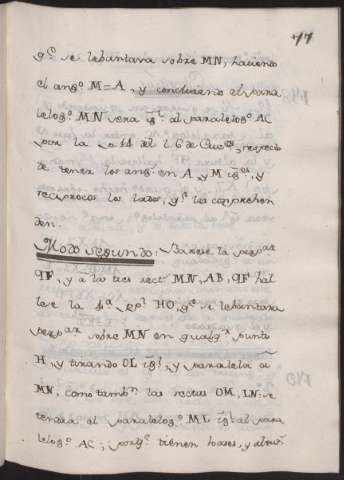 77
q.e se lebantara sobre MN, haciendo
el ang.o M=A, y concluiendo el para
lelog.o MN sera ig.l al paralelog.o AC
por la 14 del l. 6 de Euc.es, respecto
de tener los ang.s en A, y M ig.es, y
reciprocos los lados, q.e los comprehen
den.
Modo segundo: Baxese la perp.ar
PF, y a las tres rect.s MN, AB, PF hal
lese la 4.a HO, q.e se lebantara
perp.ar sobre MN en qualq.r punto
H, y tirando OL ig.l, y paralela a
MN, como tamb.n las rectas OM, LN: se
tendra el paralelog.o ML ig.l al para
lelog.o AC; porq.e tienen bases, y altur.s